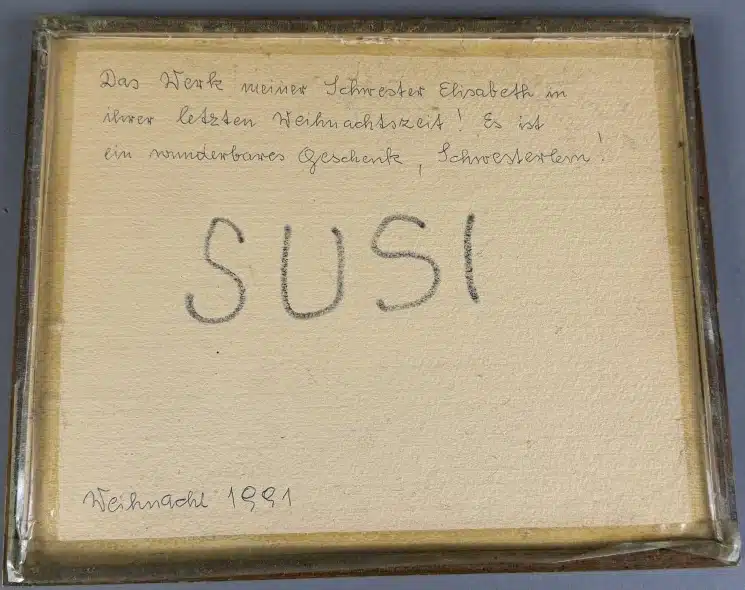 Das Werk meiner Schwester Elisabeth in
ihrer letzten Weihnachtszeit! Es ist
ein wunderbares Geschenk, Schwesterlein!
SUSI
Weihnacht 1991